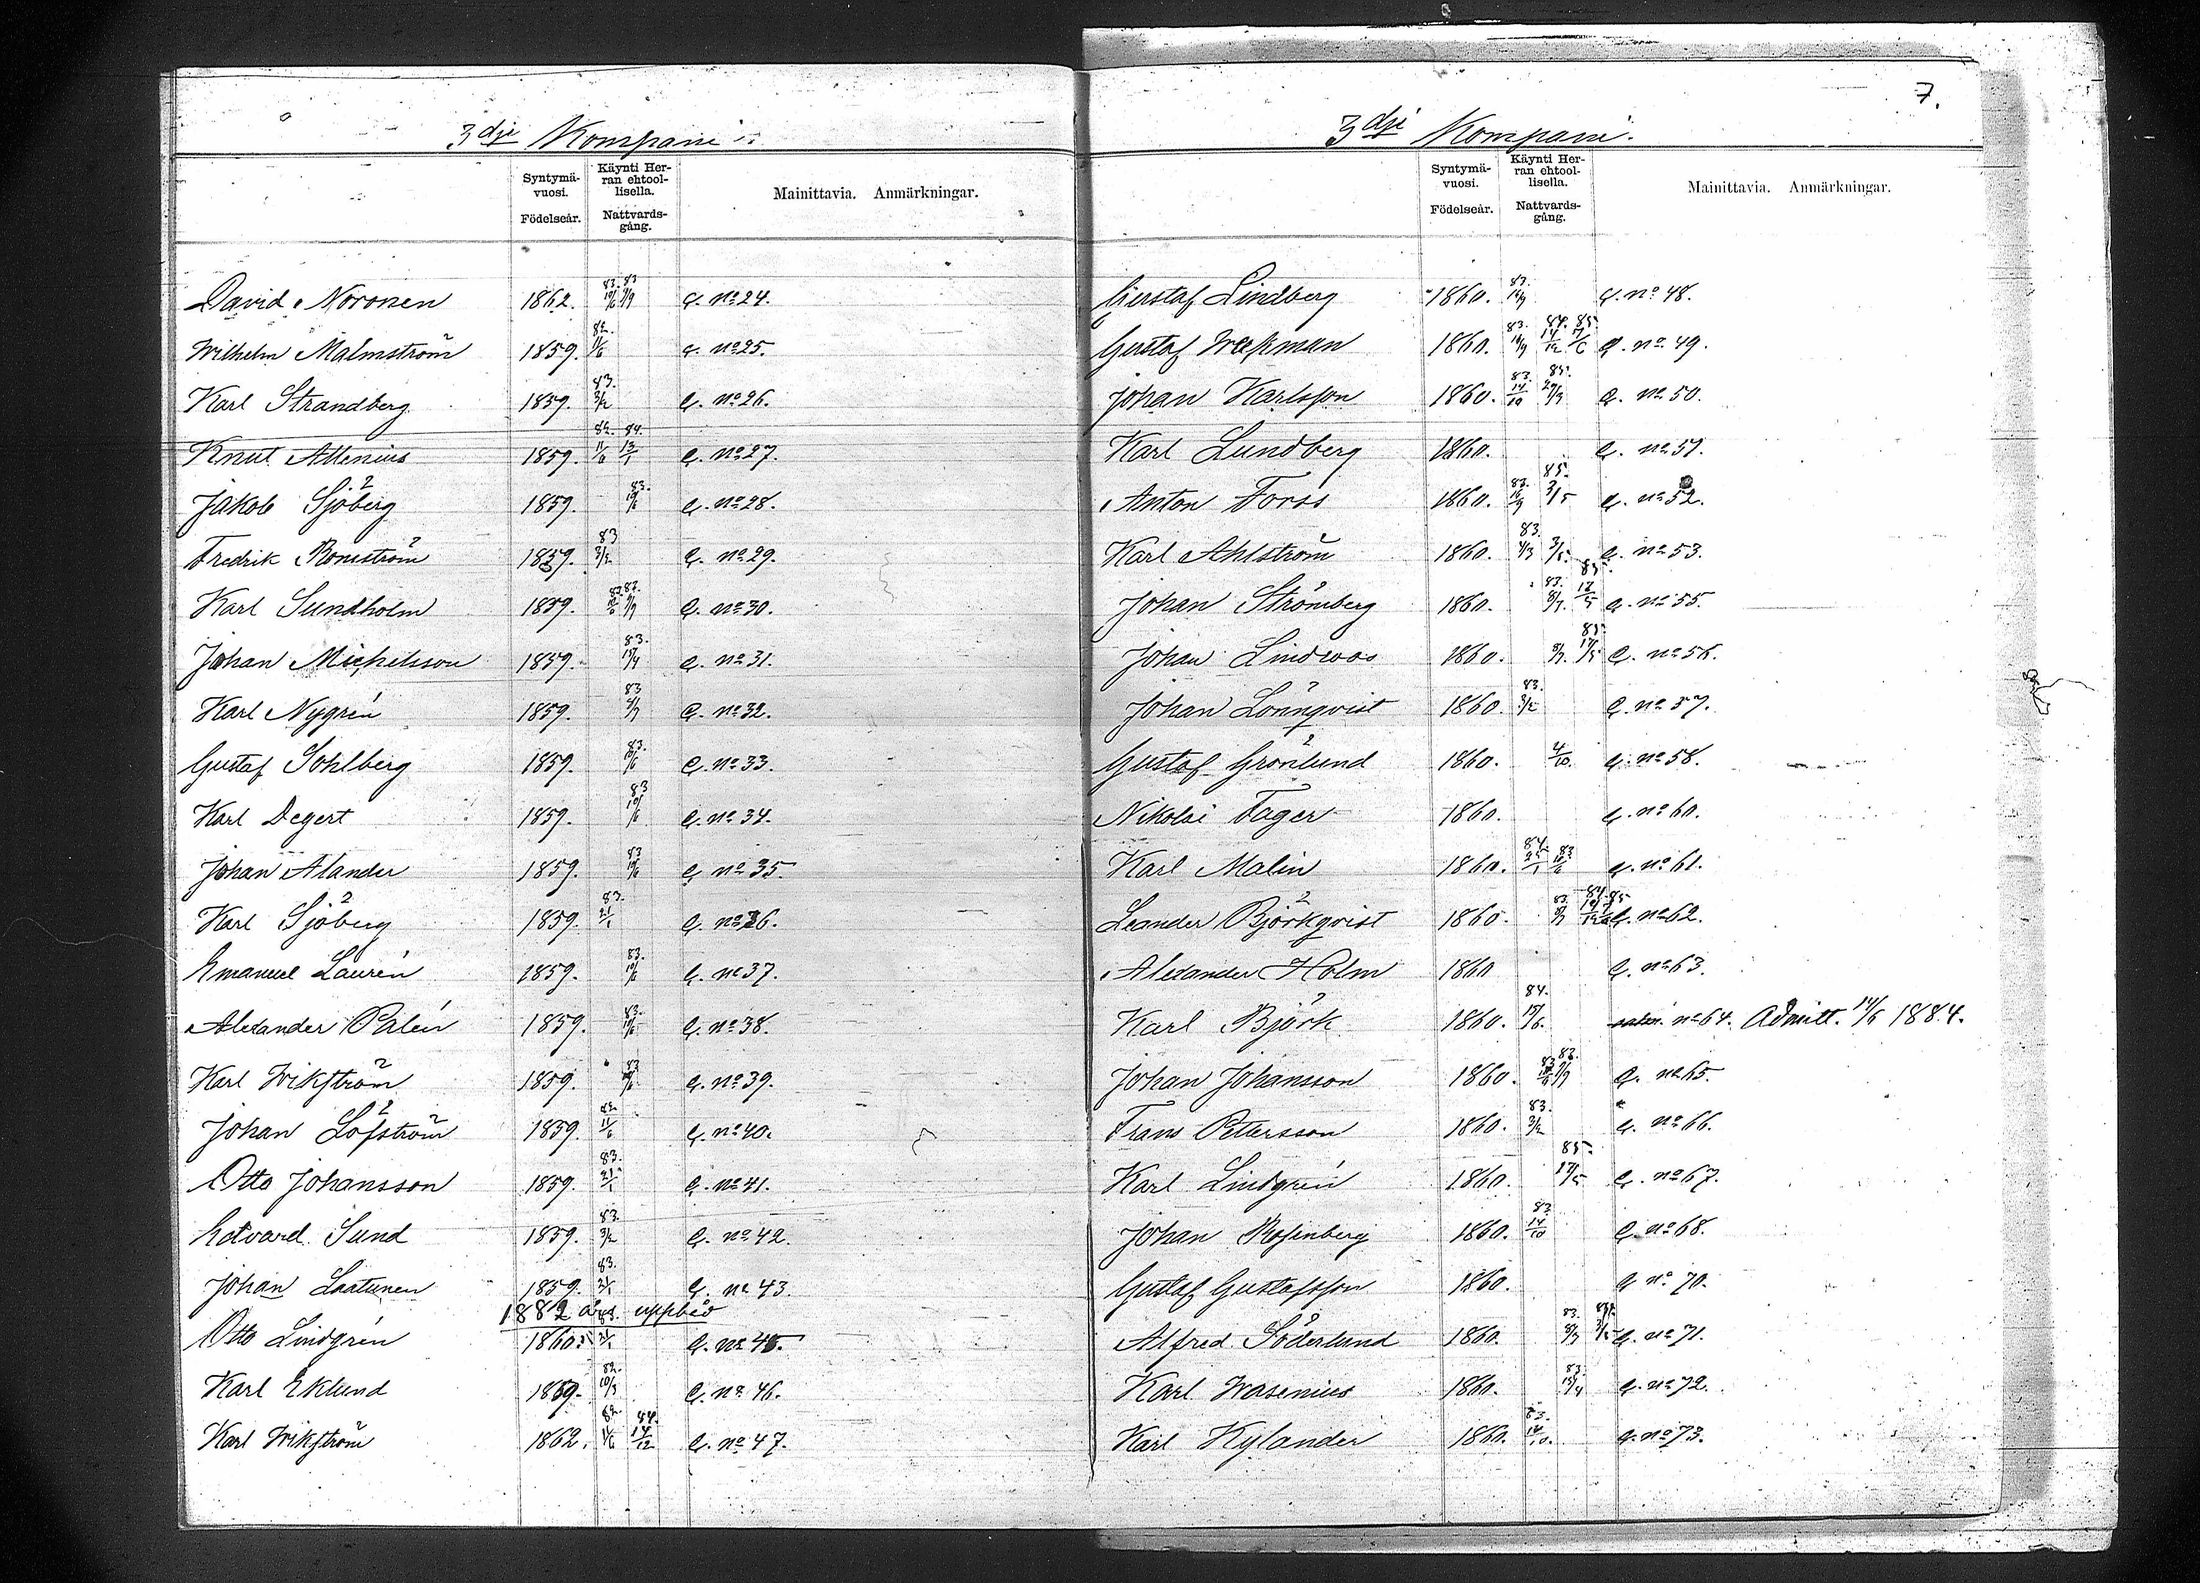 3dje Kompani.
Syntymä-vuosi. Födelseår.
Käynti Herran ehtoollisella. Nattvardsgång.
Mainittavia. Anmärkningar.
David Noronen 1862. 83. 83 10/6 9/9 C. No 24.
Wilhelm Malmström 1859. 82. 11/6 C. No 25.
Karl Strandberg 1859. 83. 3/2 C. No 26.
Knut Allenius 1859. 82. 84. 11/6 13/1 C. No 27.
Jakob Sjöberg 1859. 83. 10/6 C. No 28.
Fredrik Bomström 1859. 83 3/2 C. No 29.
Karl Sundholm 1859. 83. 83. 10/6 9/9 C. No 30.
Johan Michelsson 1859. 83. 15/4 C. No 31.
Karl Nygrén 1859. 83 8/7 C. No 32.
Gustaf Sohlberg 1859. 83. 10/6 C. No 33.
Karl Degert 1859. 83 10/6 C. No 34.
Johan Alander 1859. 83 10/6 C. No 35.
Karl Sjöberg 1859. 83. 21/1 C. No 36.
Emanuel Laurén 1859. 83. 10/6 C. No 37.
Alexander Palén 1859. 83. 10/6 C. No 38.
Karl Wikström 1859. 83 C. No 39.
Johan Löfström 1859. 82 11/6 C. No 40.
Otto Johansson 1859. 83. 21/1 C. No 41.
Edvard Sund 1859. 83. 3/2 C. No 42.
Johan Laatunen 1859. 83. 21/1 C. No 43.
1882 års uppbåd
Otto Lindgrén 1860. 83. 21/1 C. No 45.
Karl Eklund 1859. 82. 10/3 C. No 46.
Karl Wikström 1862. 82. 84. 11/6 14/12 C. No 47.
7.
3dje Kompani.
Syntymä-vuosi. Födelseår.
Käynti Herran ehtoollisella. Nattvardsgång.
Mainittavia. Anmärkningar.
Gustaf Lindberg 1860. 83. 14/9 C. No 48.
Gustaf Wepman 1860. 83. 84. 85. 14/9 14/12 C. No 49.
Johan Karlsson 1860. 83. 85. 14/10 C. No 50.
Karl Lundberg 1860. C. No 51.
Anton Forss 1860. 83. 85. 3/5 C. No 52.
Karl Ahlström 1860. 83. 3/5 C. No 53.
Johan Strömberg 1860. 83. 85. 8/7. 17/5 C. No 55.
Johan Lindroos 1860. 85. 8/7. 17/5 C. No 56.
Johan Lönnqvist 1860. 83. 3/2 C. No 57.
Gustaf Grönlund 1860. 4/10. C. No 58.
Nikolai Fager 1860. C. No 60.
Karl Malin 1860. 84. 83 C. No 61.
Leander Björkqvist 1860. 83. 84. 85 8/7 C. No 62.
Alexander Holm 1860 C. No 63.
Karl Björk 1860. 84. 15/6. No 64. Admitt. 14/6 1884.
Johan Johansson 1860. 83 83. 10/6 9/9 C. No 65.
Frans Petersson 1860. 83. 3/2 C. No 66.
Karl Lindgrén 1860. 85. 17/5 C. No 67.
Johan Rosenberg 1860. 83. 14/10 C. No 68.
Gustaf Gustafsson 1860. C. No 70.
Alfred Söderlund 1860. 83. 8/7 3/5 C. No 71.
Karl Wasenius 1860. 83. 15/4 C. No 72.
Karl Kylander 1860. 83. 14/10. C. No 73.